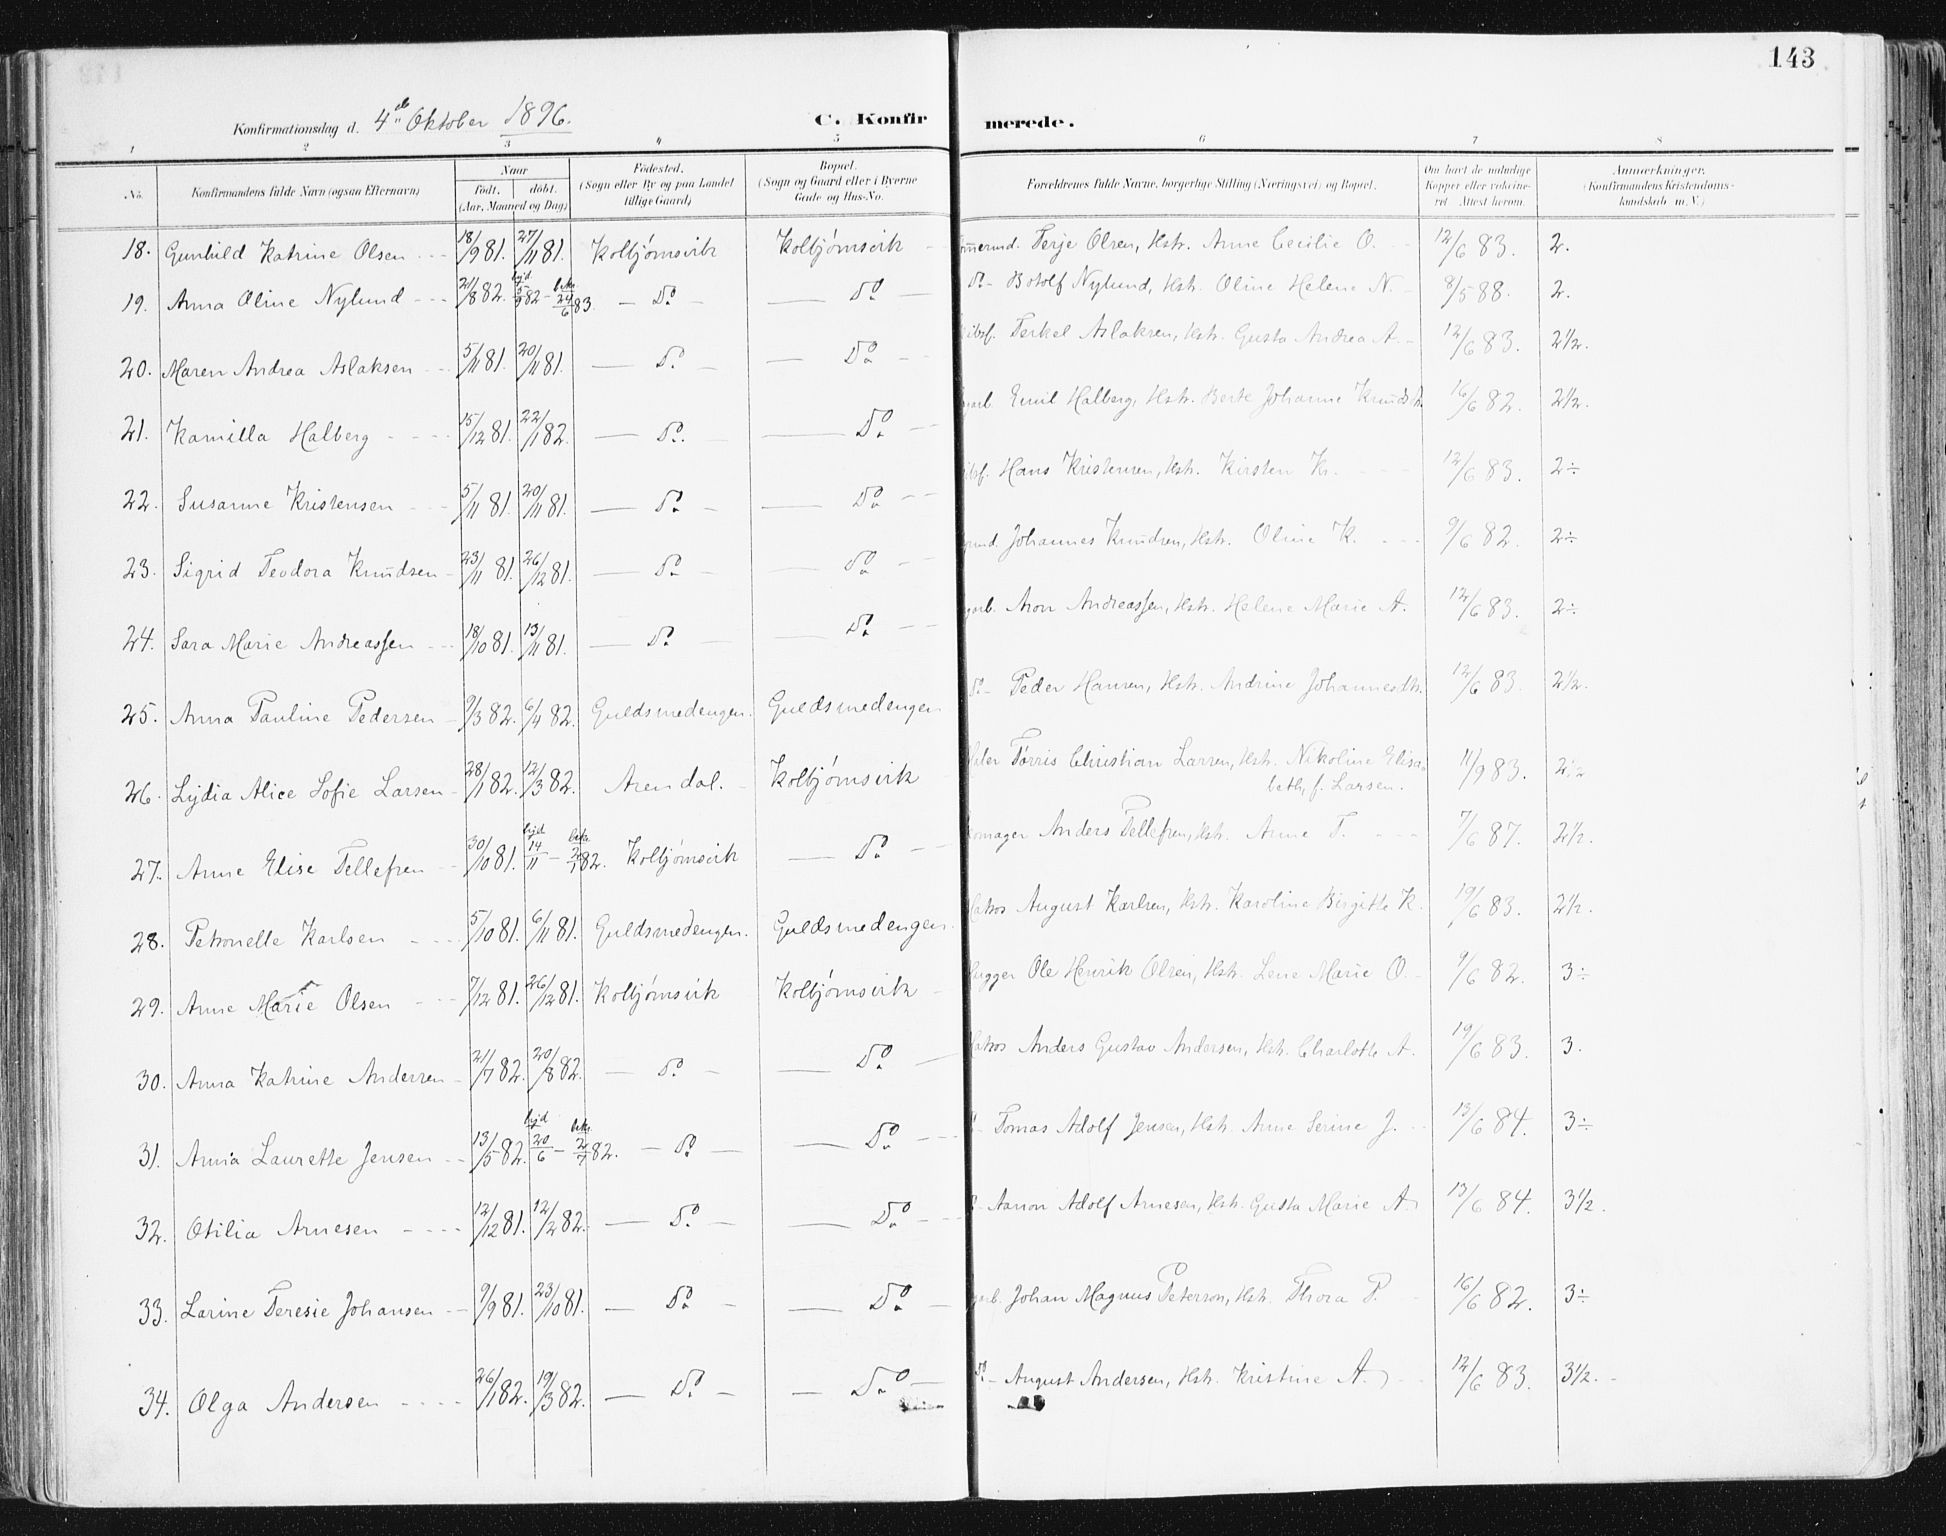 143
Konfirmationsdag d. 4de Oktober 1896.
C. Konfirmerede.
1 2 3 4 5 6 7 8
No. Konfirmandens fulde Navn (ogsaa Efternavn) Naar født. døbt. (Aar, Maaned og Dag) Fødested. (Sogn eller By og paa Landet tillige Gaard) Bopæl. (Sogn og Gaard eller i Byerne Gade og Hus-No. Forældrenes fulde Navne, borgerlige Stilling (Næringsvei) og Bopæl. Om havt de naturlige Kopper eller vakcineret. Attest herom. Anmærkninger. (Konfirmandens Kristendomskundskab m. V.)
18. Gunhild Katrine Olsen 18/9 81. 27/11 81. Kolbjørnsvik Kolbjørnsvik Terje Olsen, Hstr. Anne Cecilie O. 12/6 83. 2.
19. Anna Oline Nylund 21/8 82. hjd 5/9 82 - bekr. 24/6 83. Do Do Do Botolf Nylund, Hstr. Oline Helene N. 8/5 88. 2.
20. Maren Andrea Aslaksen 5/11 81. 20/11 81. Do Do Terkel Aslaksen, Hstr. Gusta Andrea A. 12/6 83. 2½.
21. Kamilla Halberg 15/12 81. 22/1 82. Do. Do Emil Halberg, Hstr. Berte Johanne Knudstr. 16/6 82. 2½.
22. Susanne Kristensen 5/11 81. 20/11 81. Do Do Hans Kristensen, Hstr. Kirsten Kr. 12/6 83. 2÷
23. Sigrid Teodora Knudsen 23/11 81. 26/12 81. Do Do Johannes Knudsen, Hstr. Oline K. 9/6 82. 2÷
24. Sara Marie Andreassen 18/10 81. 13/11 81. Do Do Aron Andreassen, Hstr. Helene Marie A. 12/6 83. 2÷
25. Anna Pauline Pedersen 9/3 82. 6/4 82. Guldsmedengen. Guldsmedengen Do Peder Hansen, Hstr. Andrine Johannesdtr. 12/6 83. 2½.
26. Lydia Alice Sofie Larsen 28/1 82. 12/3 82. Arendal. Kolbjørnsvik Tørris Christian Larsen, Hstr. Nikoline Elisabeth, f. Larsen. 11/9 83. 2½
27. Anne Elise Tellefsen 30/10 81. hjd 14/11 - bekr. 2/1 82. Kolbjørnsvik Do Anders Tellefsen, Hstr. Anne T. 7/6 87. 2½.
28. Petronelle Karlsen 5/10 81. 6/11 81. Guldsmedengen. Guldsmedengen. August Karlsen, Hstr. Karoline Birgitte K. 19/6 83. 2½.
29. Anne Marie Olsen 7/12 81. 26/12 81. Kolbjørnsvik Kolbjørnsvik Ole Henrik Olsen, Hstr. Lene Marie O. 9/6 82. 3÷
30. Anna Katrine Andersen 21/7 82. 20/8 82. Do Do Anders Gustav Andersen, Hstr. Charlotte A. 19/6 83. 3.
31. Anna Laurette Jensen 13/5 82. hjd 20/6 - bekr. 2/7 82. Do Do Tomas Adolf Jensen, Hstr. Anne Serine J. 13/6 84. 3÷
32. Otilia Arnesen 12/12 81. 12/2 82. Do Do Aanon Adolf Arnesen, Hstr. Gusta Marie A. 13/6 84. 3½.
33. Larine Teresie Johansen 9/9 81. 23/10 81. Do Do Johan Magnus Peterson, Hstr. Thora P. 16/6 82. 3÷
34. Olga Andersen 26/1 82. 19/3 82. Do Do Do August Andersen, Hstr. Kristine A. 12/6 83. 3½.